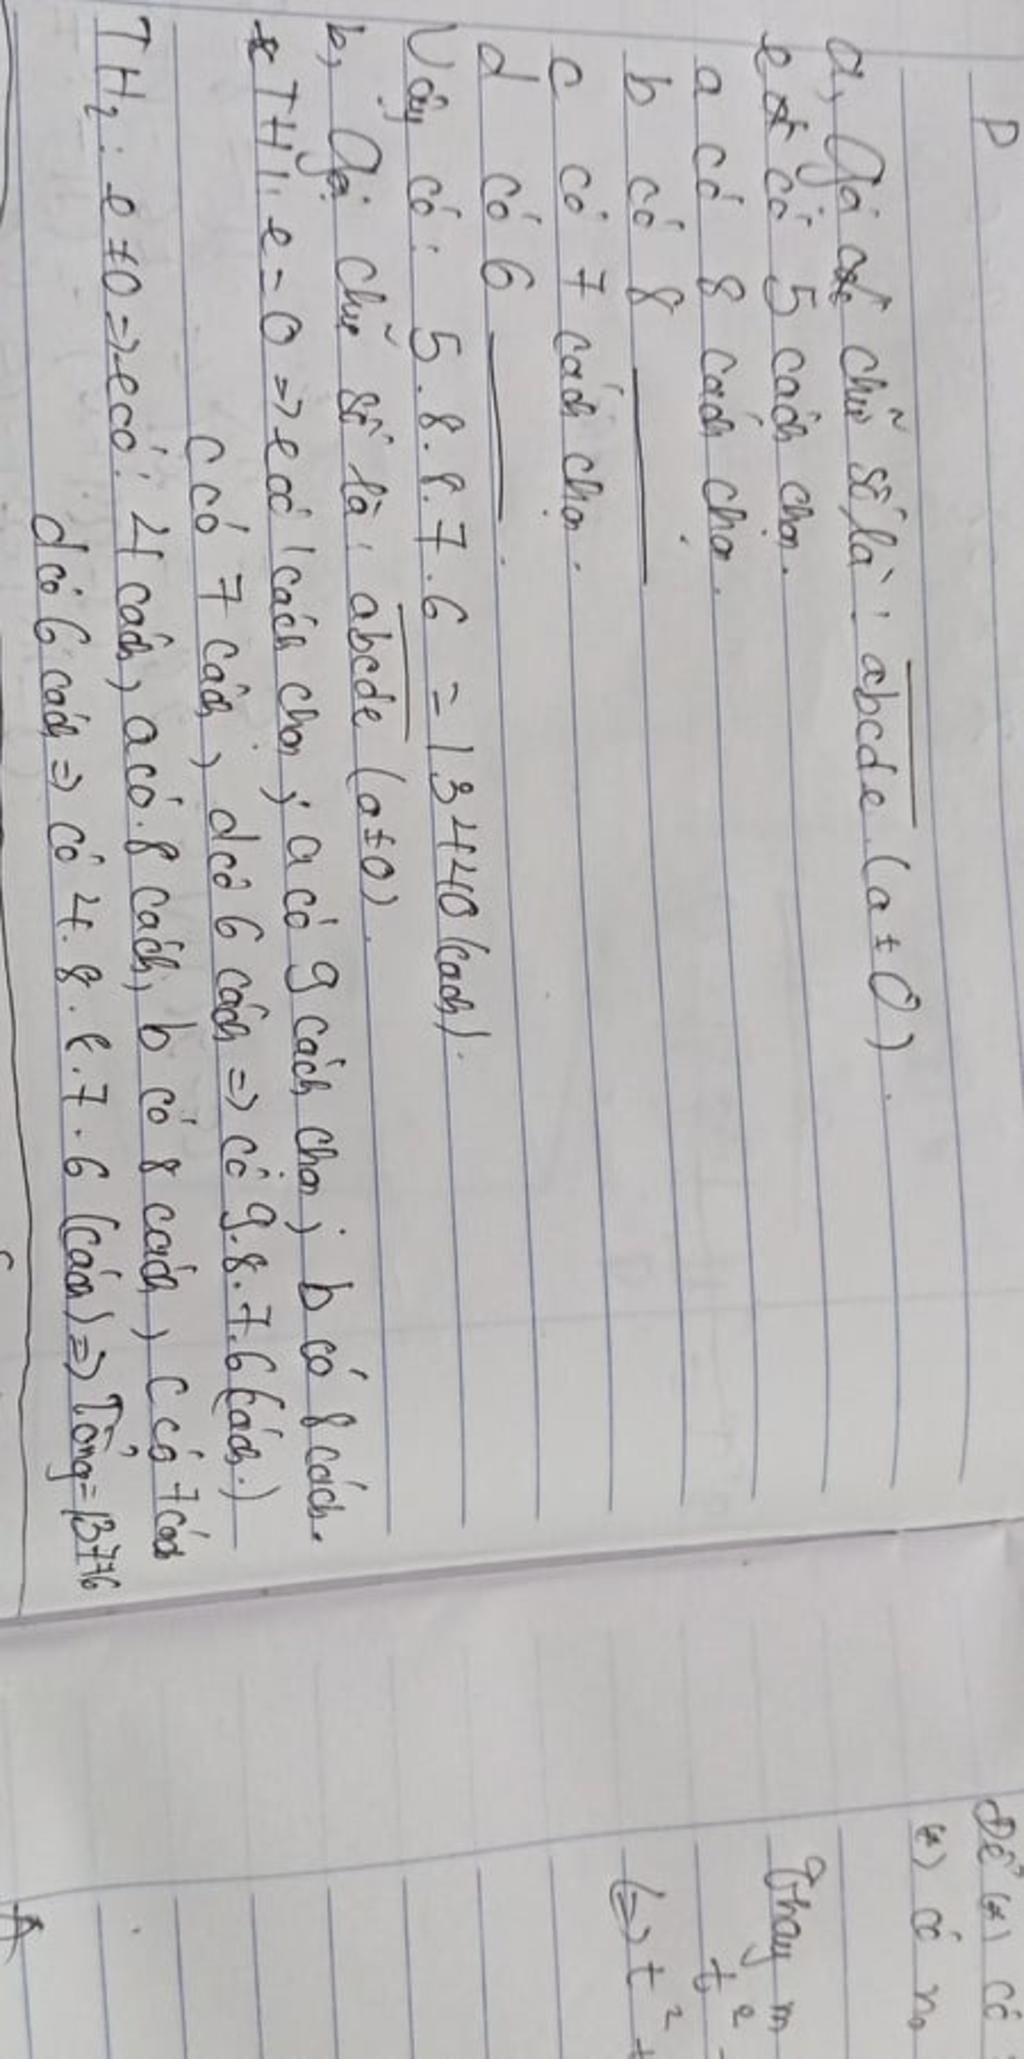 a, Gọi chữ số là : abcde (a ≠ 0).
e có 5 cách chọn.
a có 8 cách chọn.
b có 8
c có 7 cách chọn.
d có 6
Vậy có : 5.8.8.7.6 = 13440 (cách).
b, Gọi chữ số là : abcde (a ≠ 0).
TH1: e = 0 => e có 1 cách chọn ; a có 9 cách chọn ; b có 8 cách.
c có 7 cách, d có 6 cách => có 9.8.7.6 (cách.)
TH2: e ≠ 0 => e có : 4 cách, a có 8 cách, b có 8 cách, c có 7 cách
d có 6 cách => có 4.8.8.7.6 (cách) => Tổng = 13776
Để (*) có
(*) có n0
Thay m
t²
(=) t² +